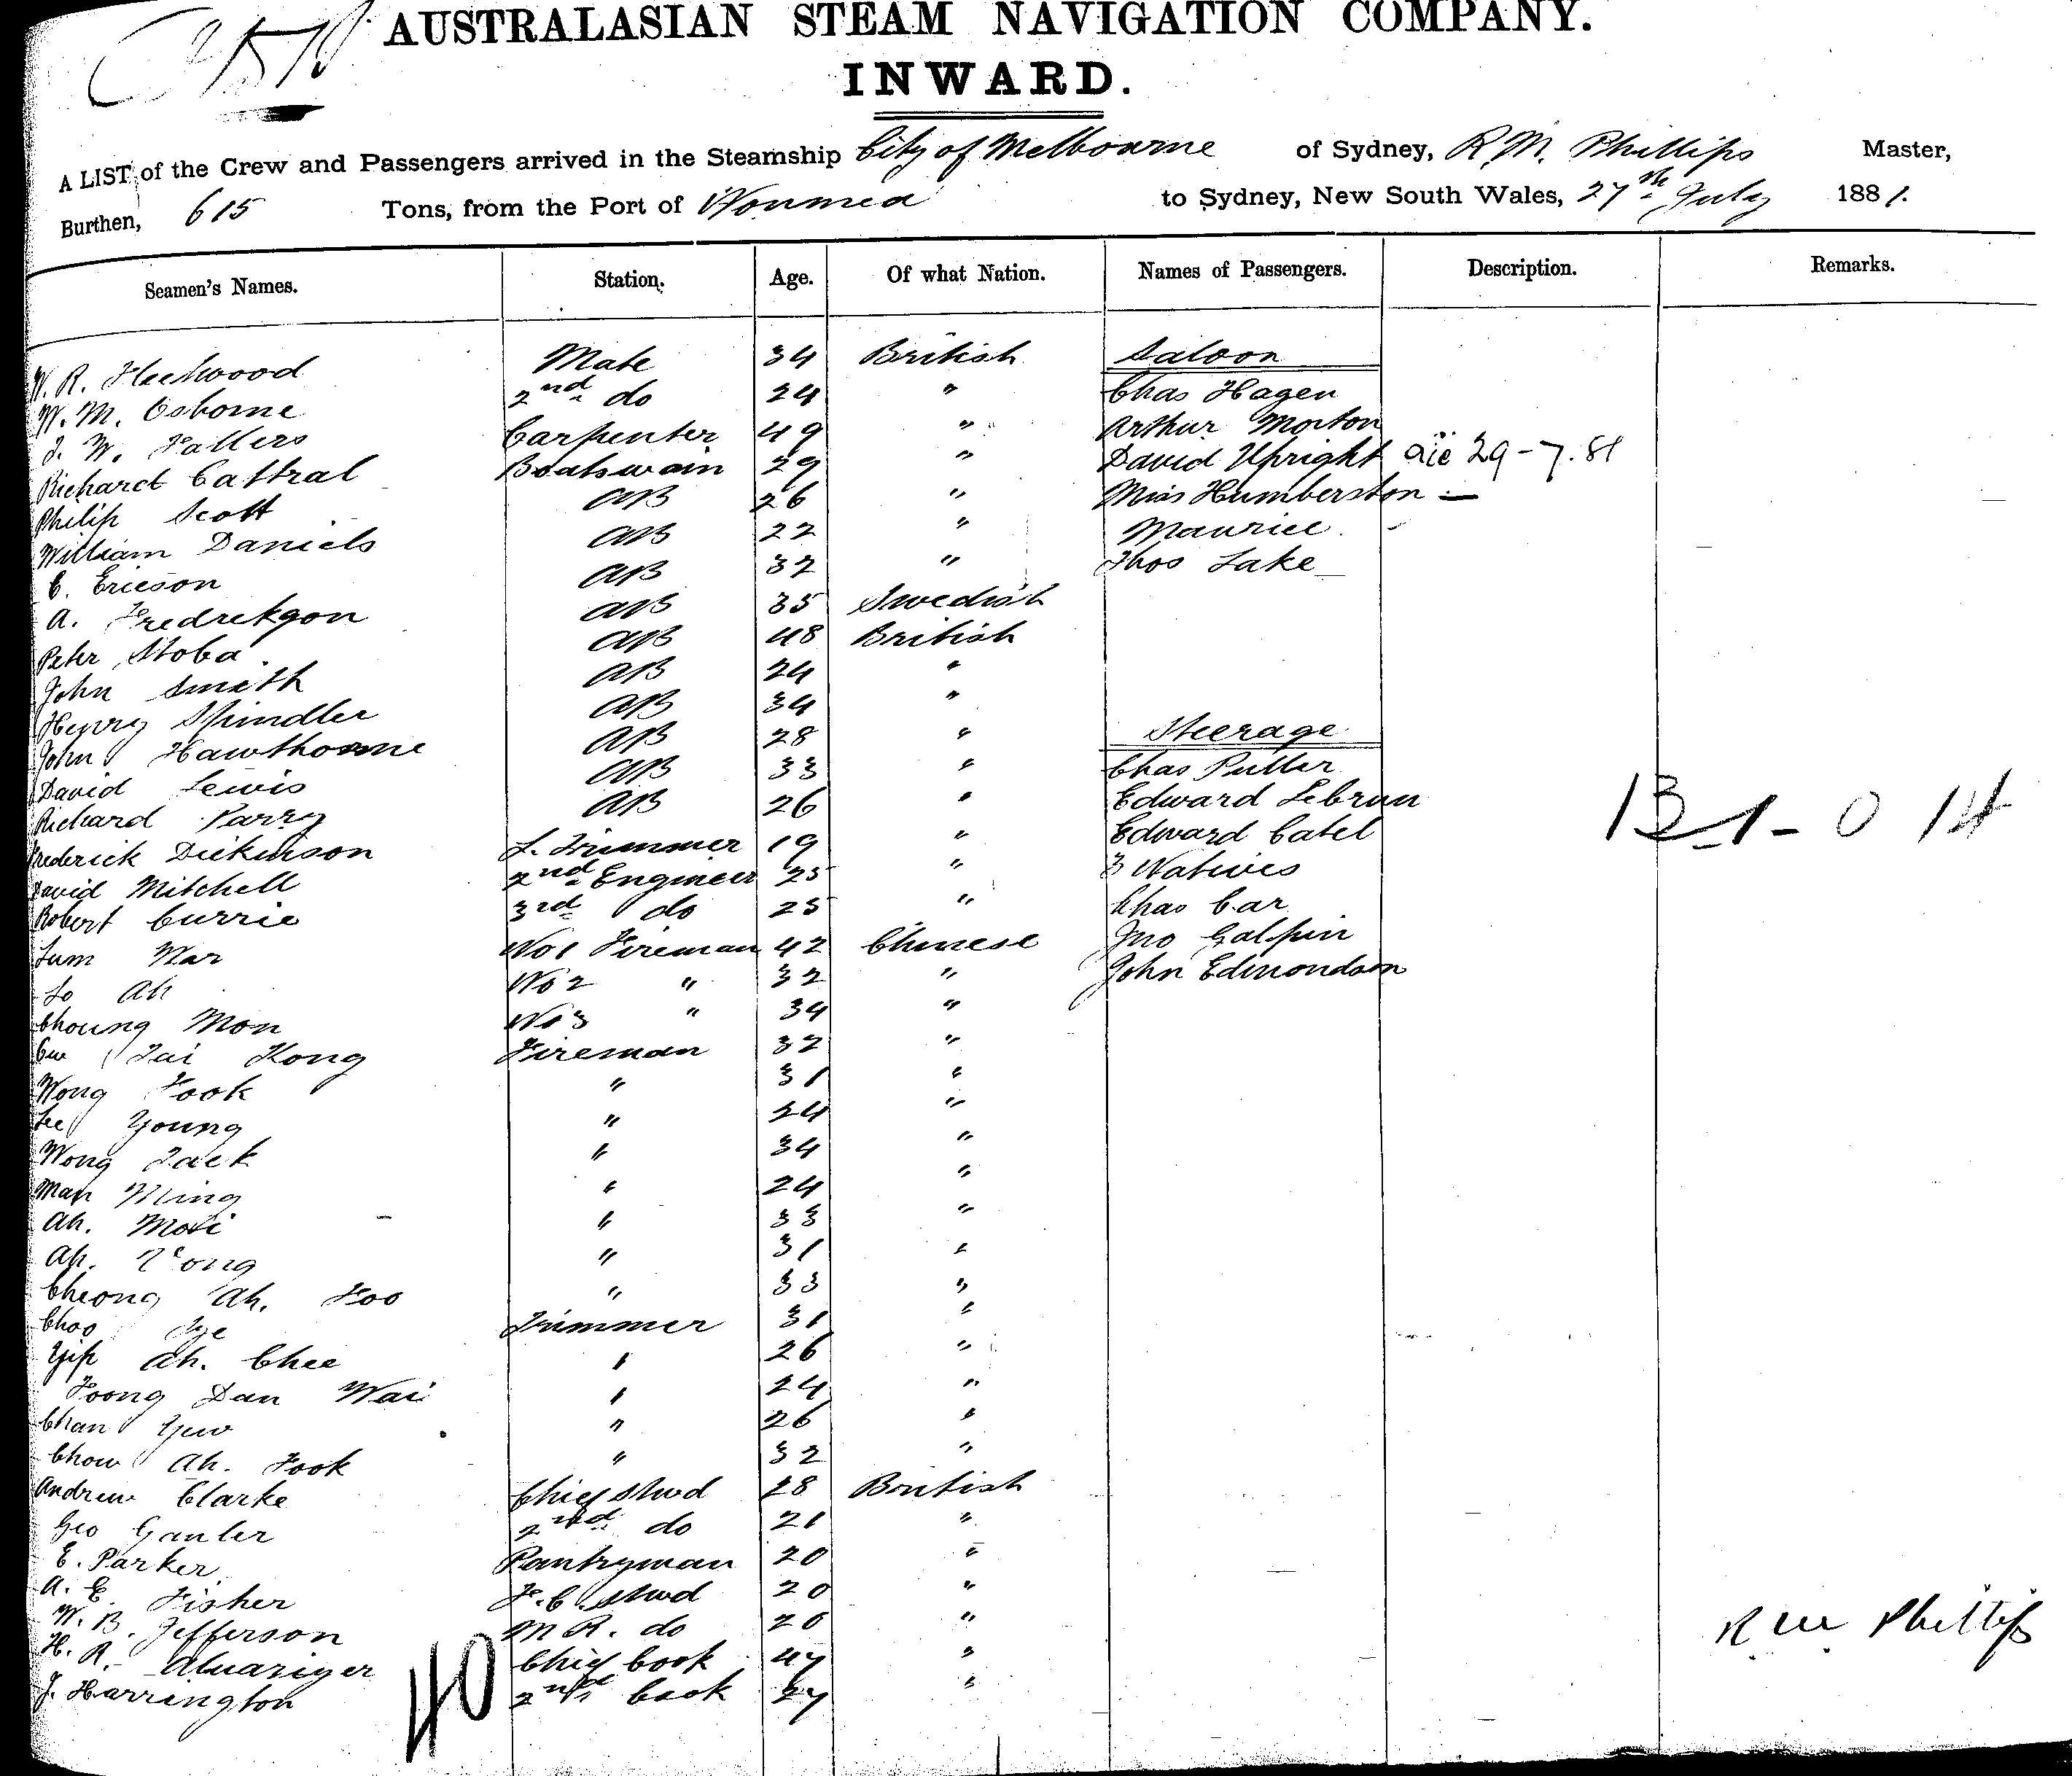 AUSTRALASIAN STEAM NAVIGATION COMPANY.
INWARD.
A LIST of the Crew and Passengers arrived in the Steamship City of Melbourne of Sydney, R.M. Phillips Master,
Burthen, 615 Tons, from the Port of Noumea to Sydney, New South Wales, 27th July 1881.
Seamen's Names. Station. Age. Of what Nation. Names of Passengers. Description. Remarks.
W. R. Fleetwood Mate 34 British Saloon
W. M. Osborne 2nd do 24 " Chas Hagen
J. W. Carpenter 49 " Arthur Morton
Richard Cattral Boatswain 29 " David Upright 29-7.81
Philip Scott AB 26 " Miss Humberston —
William Daniels AB 22 " Maurice
C. Ericson AB 32 " Thos Lake
A. Fredrekson AB 35 Swedish
Peter Stoba AB 48 British
John Smith AB 24 "
Henry Spindler AB 34 "
John Hawthorne AB 28 " Steerage
David Lewis AB 33 " Chas Putler
Richard Parry AB 26 " Edward Lebrun
Frederick Dickinson L. Trimmer 19 " Edward Catel
David Mitchell 2nd Engineer 25 " 3 Natives
Robert Currie 3rd do 25 " Chas Car
Lum War No 1 Fireman 42 Chinese Jno Galpin
Lo Ah No 2 " 32 " John Edmondson
Choung Mon No 3 " 34 "
Tai Kong Fireman 32 "
Wong Fook " 31 "
Lee Young " 24 "
Wong Jack " 34 "
Man Ming " 24 "
Ah. Moi " 33 "
Ah. " 31 "
Cheong Ah. Foo " 33 "
Choo Trimmer 31 "
Yip Ah. Chee " 26 "
Foong Dan Wai " 24 "
Chan Yuw " 26 "
Chow Ah. Fook " 32 "
Andrew Clarke Chief Stwd 28 British
Geo Ganler 2nd do 21 "
E. Parker Pantryman 20 "
A. E. Fisher F. C. Stwd 20 "
W. B. Jefferson M R. do 20 "
H. R. Chief Cook 47 "
J. Harrington 2nd Cook 27 "
40
R M Phillips